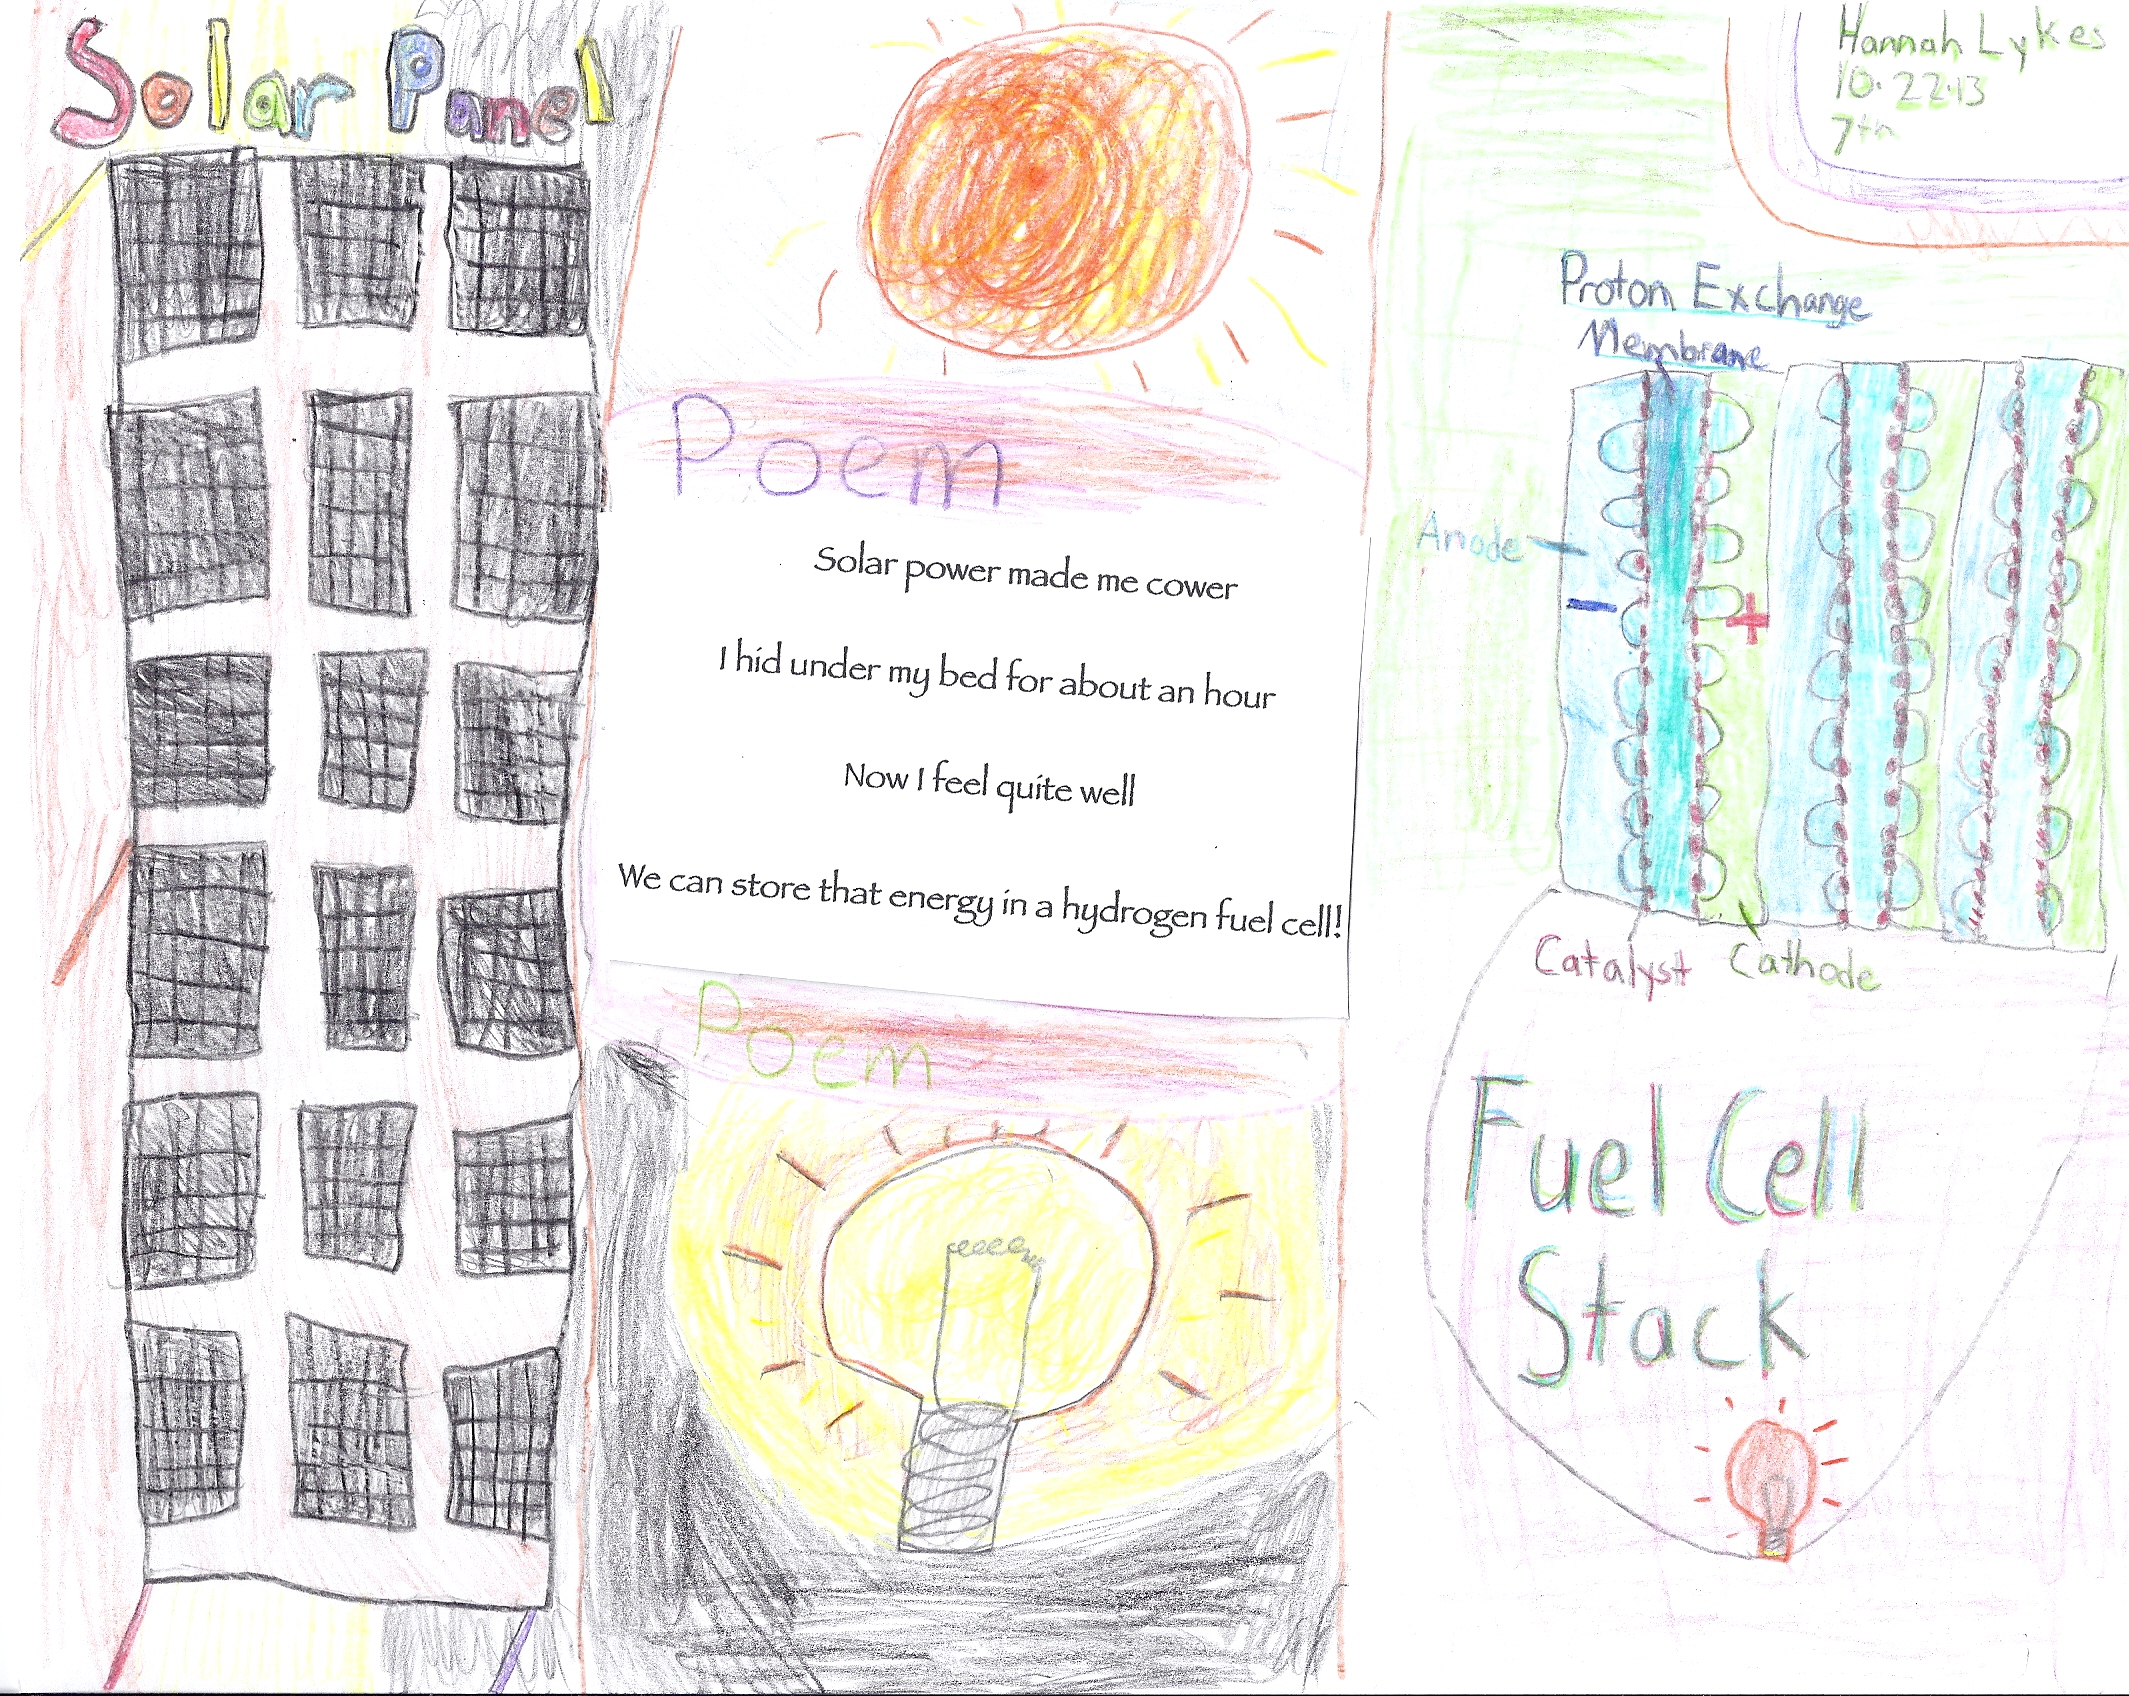 Solar Panel
Poem
Solar power made me cower
I hid under my bed for about an hour
Now I feel quite well
We can store that energy in a hydrogen fuel cell!
Poem
Hannah Lykes
10.22.13
7th
Proton Exchange
Membrane
Anode
-
+
Catalyst
Cathode
Fuel Cell
Stack